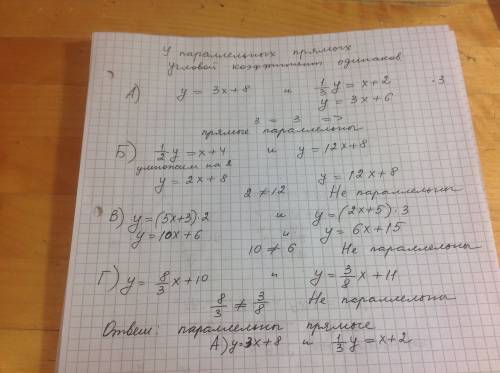 У параллельных прямых
угловой коэффициент одинаков.
А) y = 3x+8 и 1/3 y = x+2 ·3
y = 3x+6
3 = 3 =>
прямые параллельны
Б) 1/2 y = x+4 и y = 12x+8
умножим на 2
y = 2x+8 y = 12x+8
2 ≠ 12 Не параллельны
В) y = (5x+3)·2 и y = (2x+5)·3
y = 10x+6 и y = 6x+15
10 ≠ 6 Не параллельны
Г) y = 8/3 x+10 и y = 3/8 x+11
8/3 ≠ 3/8 Не параллельны
Ответ: параллельны прямые
А) y=3x+8 и 1/3 y = x+2